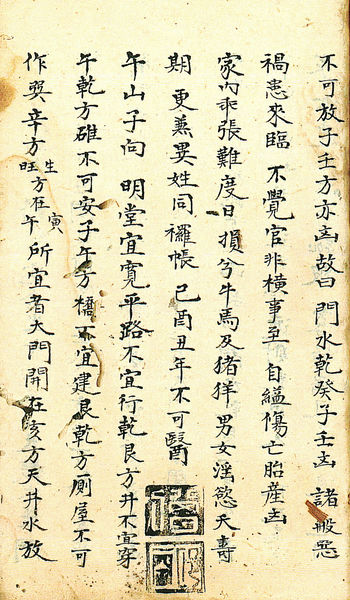 不可放子壬方亦凶故曰門水乾癸子壬凶諸般惡
禍患來臨不覺官非横事至自縊傷亡胎產凶
家内乖張難度日損兮牛馬及猪羊男女淫慾夭壽
期更兼異姓同羅帳己酉丑年不可醫
午山子向明堂宜寬平路不宜行乾艮方井不宜穿
午乾方碓不可安子午方橋不宜建艮乾方厠屋不可
作巽辛方生方在寅旺方在午所宜者大門開在亥方天井水放